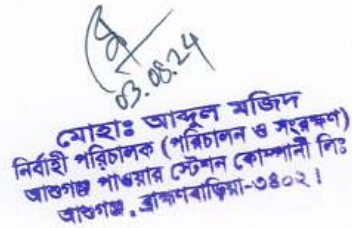 03.08.24
মোহাঃ আব্দুল মজিদ
নির্বাহী পরিচালক (পরিচালন ও সংরক্ষণ)
আশুগঞ্জ পাওয়ার স্টেশন কোম্পানী লিঃ
আশুগঞ্জ, ব্রাহ্মণবাড়িয়া-৩৪০২।